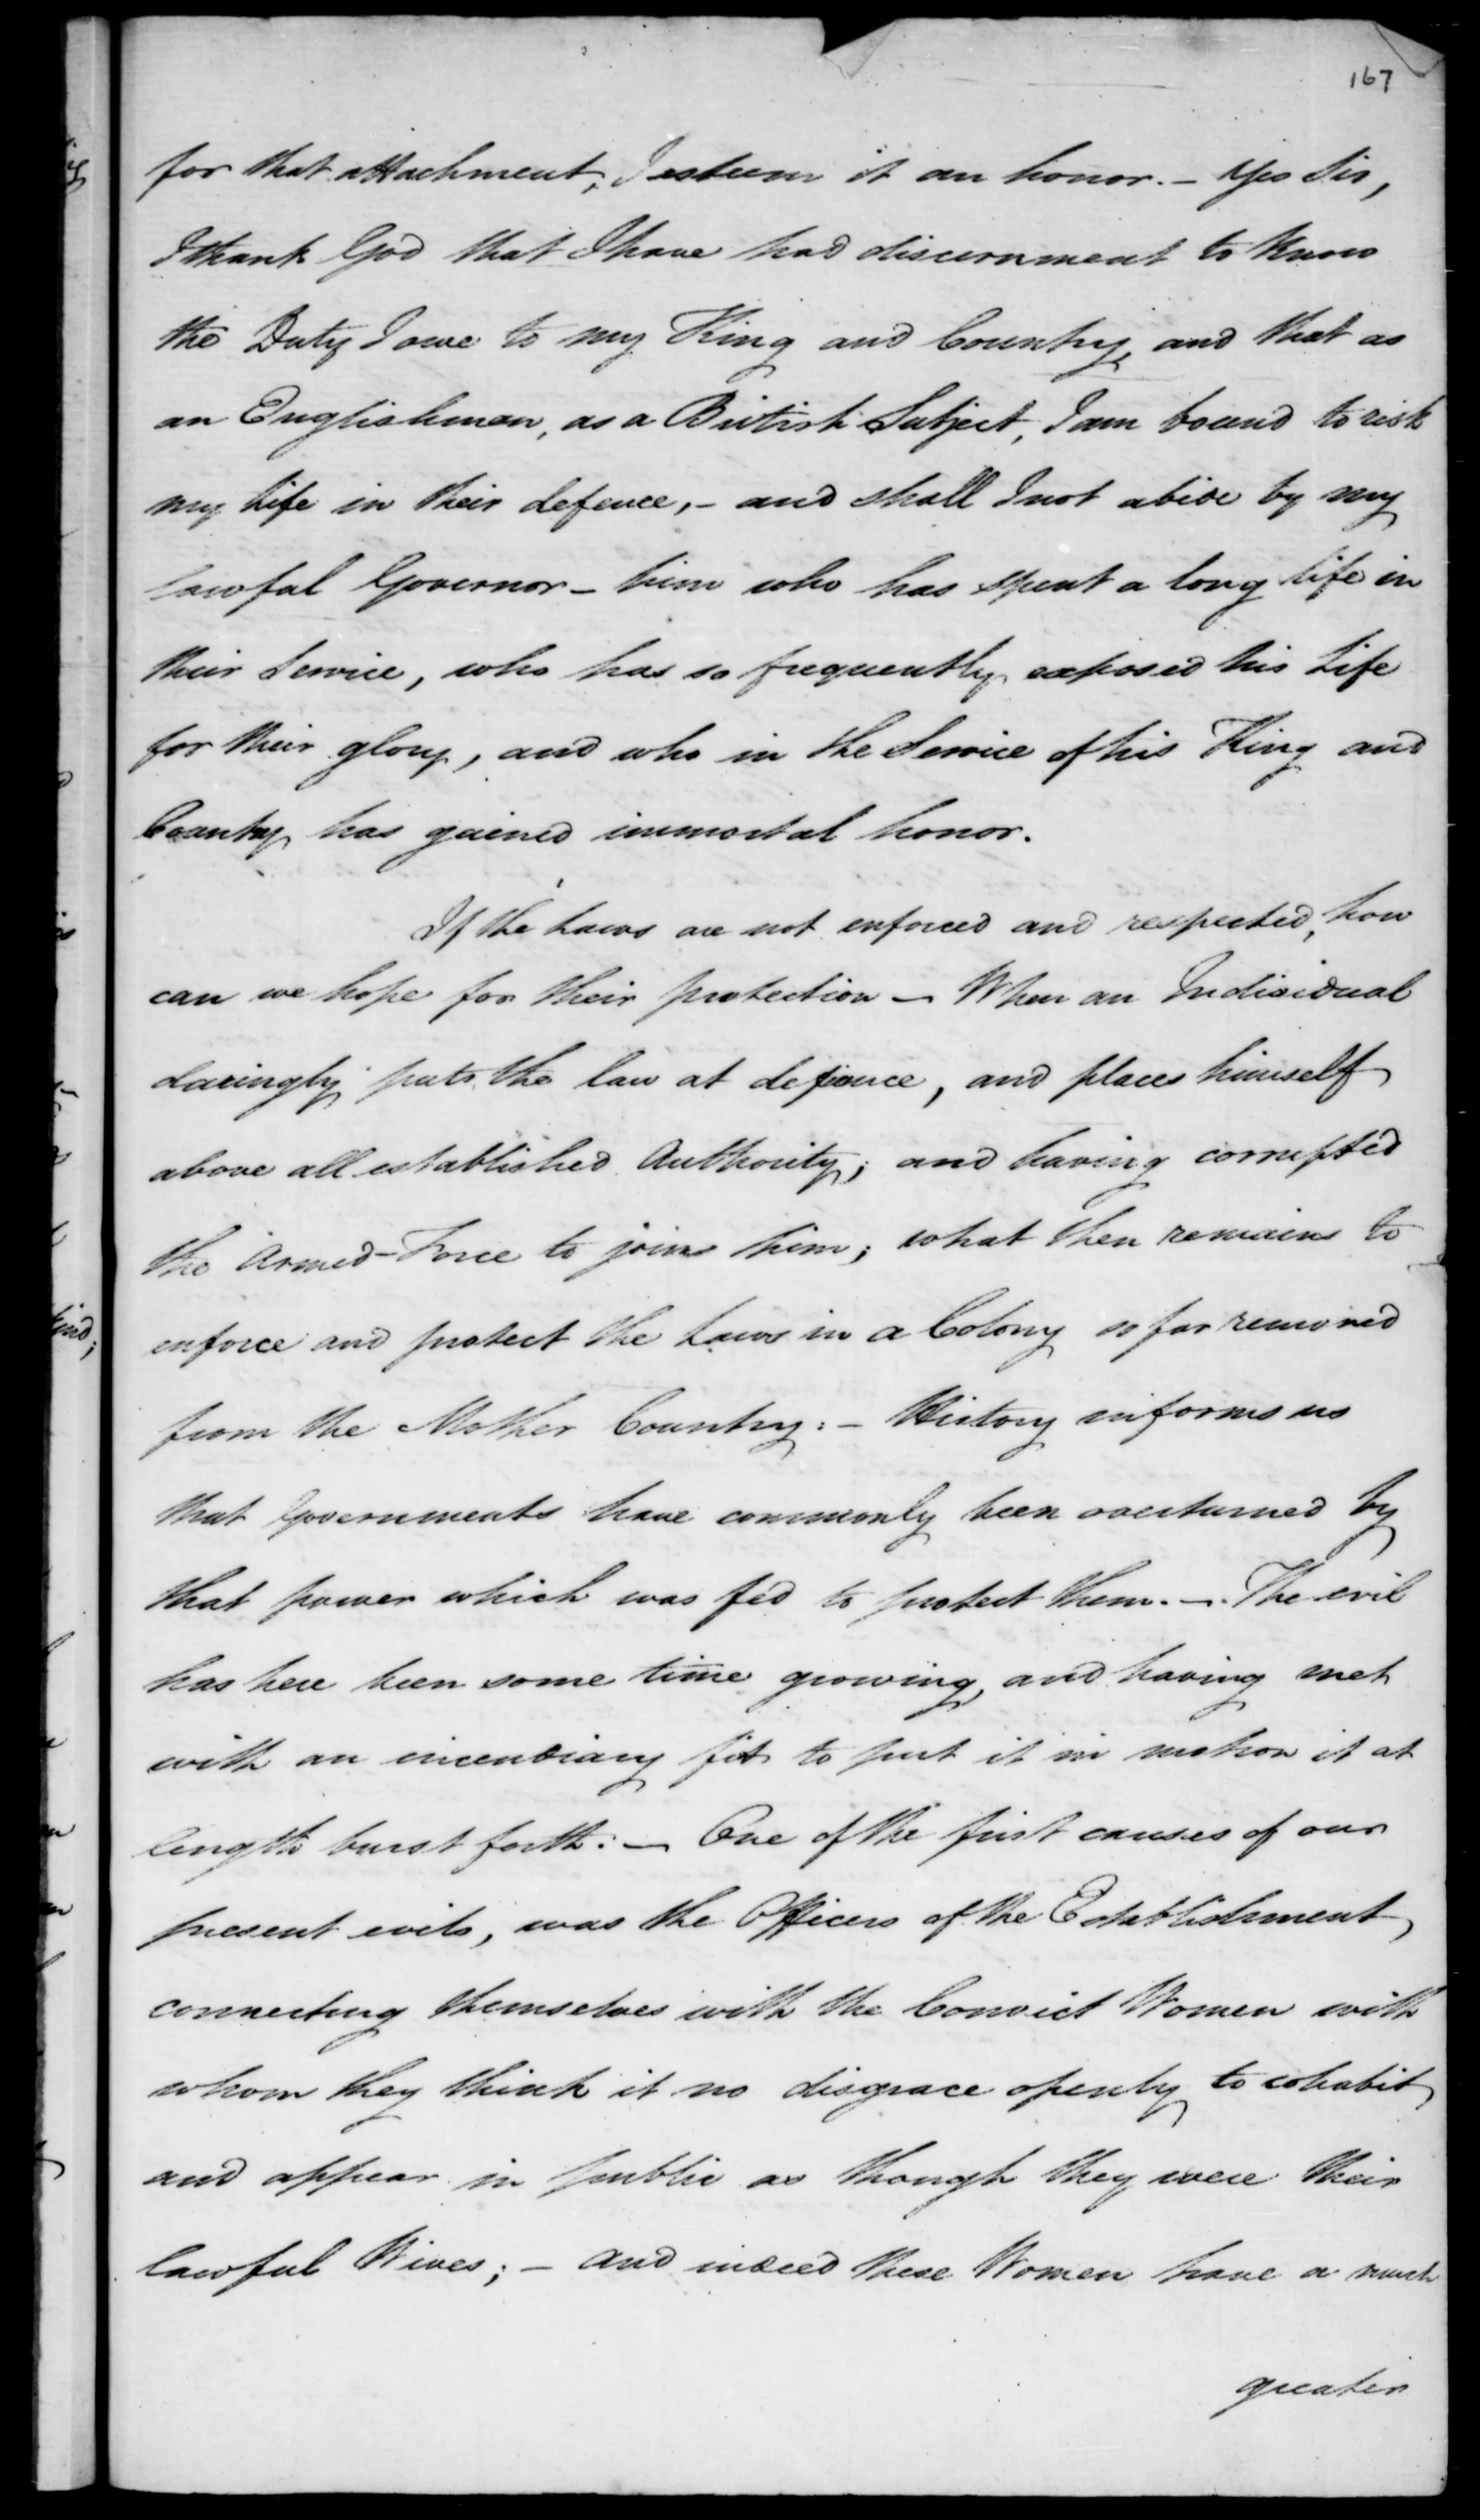 167
for that attachment, I esteem it an honor. – Yes Sir,
I thank God that I have had discernment to know
the Duty I owe to my King and Country, and that as
an Englishman, as a British Subject, I am bound to risk
my Life in their defence, – and shall I not abide by my
lawful Governor – him who has spent a long life in
their Service, who has so frequently exposed his Life
for their glory, and who in the Service of his King and
Country has gained immortal honor.
If the Laws are not enforced and respected, how
can we hope for their protection – When an Individual
daringly puts the law at defiance, and places himself
above all established Authority; and having corrupted
the Armed-Force to join him; what then remains to
enforce and protect the Laws in a Colony so far removed
from the Mother Country: – History informs us
that Governments have commonly been overturned by
that power which was fed to protect them. – The evil
has here been some time growing, and having met
with an incendiary fit to put it in motion it at
length burst forth: – One of the first causes of our
present evils, was the Officers of the Establishment
connecting themselves with the Convict Women with
whom they think it no disgrace openly to cohabit
and appear in public as though they were their
lawful Wives; – and indeed these Women have a much
greater